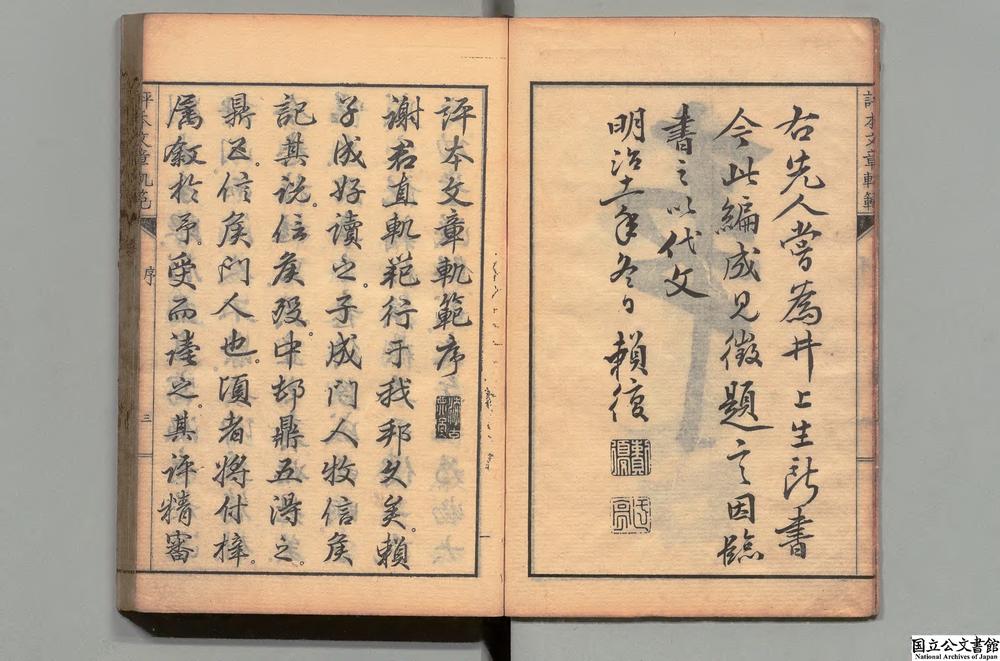 評本文章軌範
右先人嘗為井上生所書
今此編成見徵題言因臨
書之以代文
明治十一年冬日 賴復
評本文章軌範序
謝君直軌範行于我邦久矣。賴
子成好讀之。子成門人牧信侯
記其說。信侯歿。中邨鼎五得之。
鼎五。信侯門人也。頃者將付梓。
屬敘於予。受而讀之。其評精審
評本文章軌範 序 三
国立公文書館
National Archives of Japan